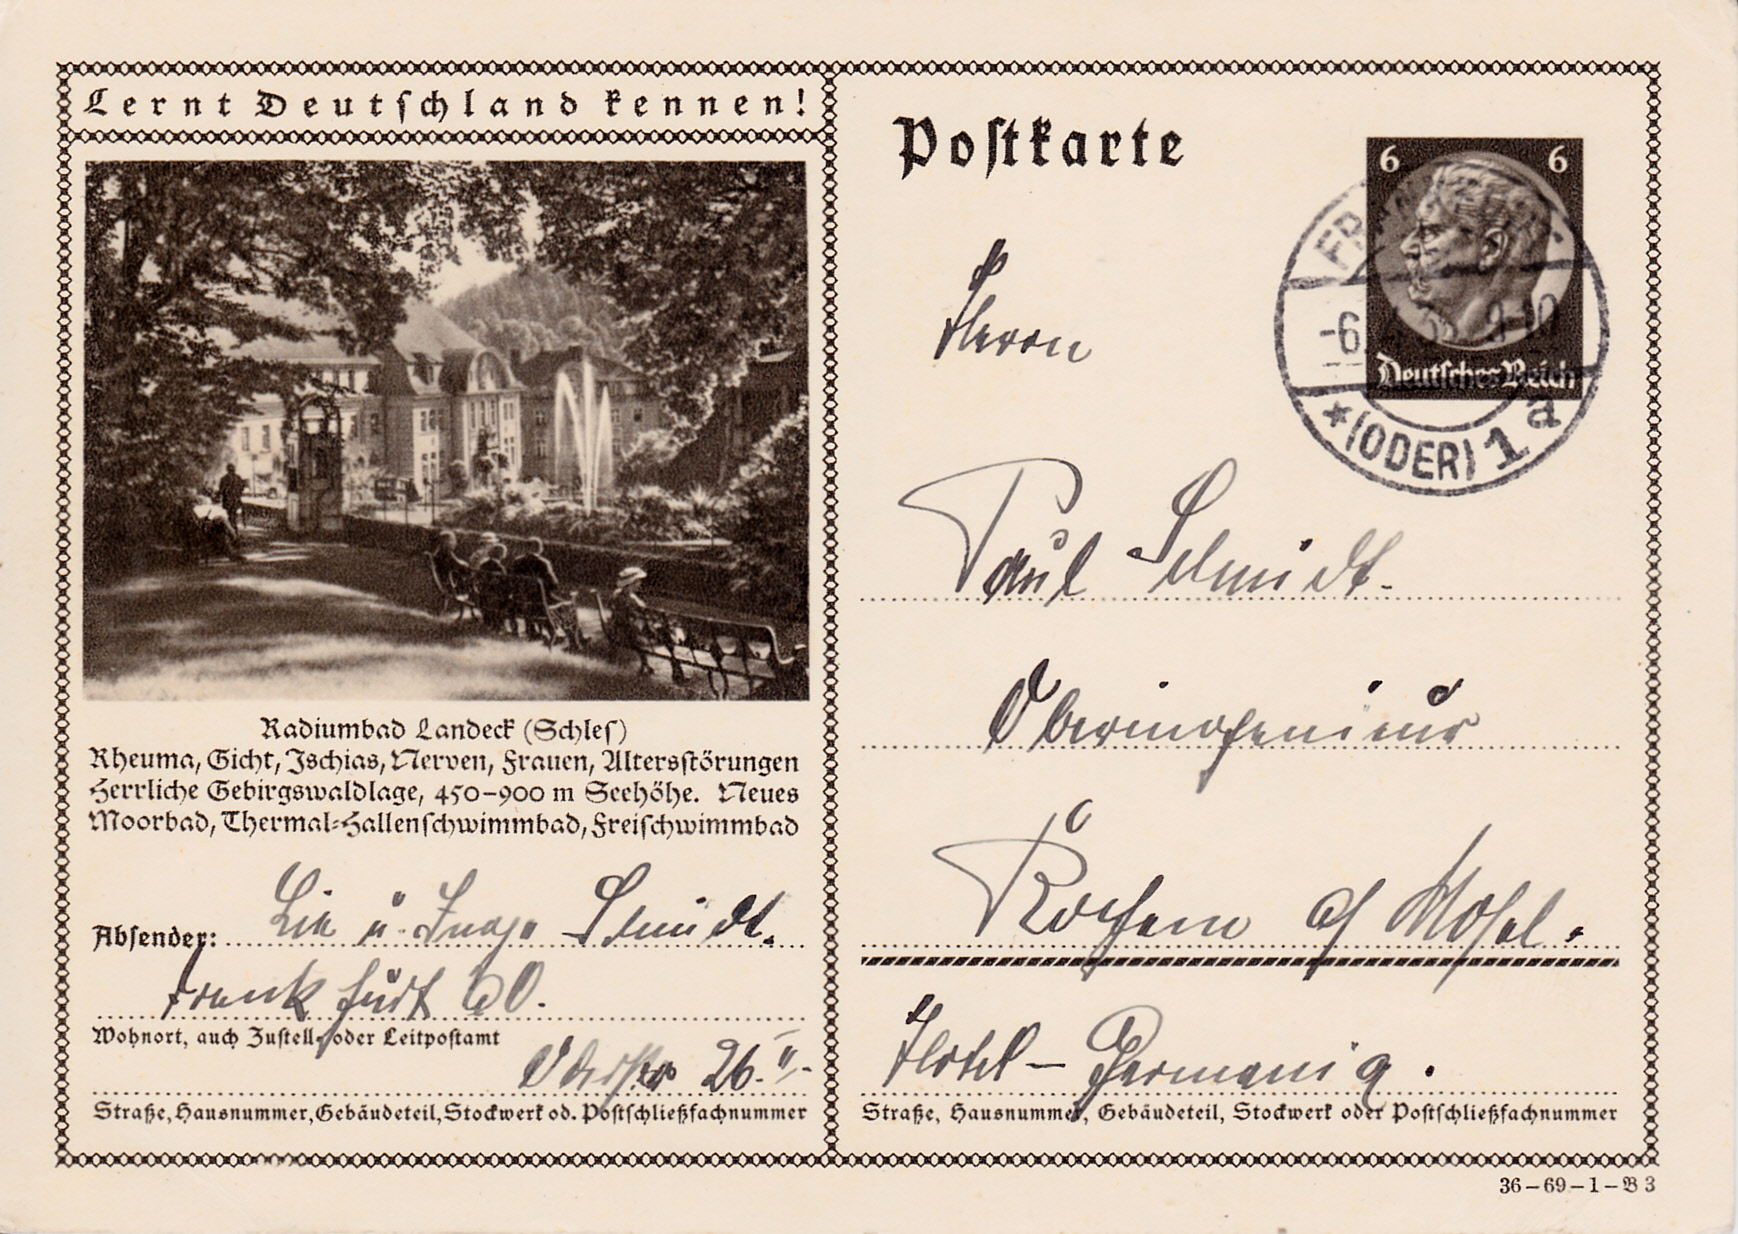 Lernt Deutschland kennen!
Radiumbad Landeck (Schles)
Rheuma, Gicht, Ischias, Nerven, Frauen, Altersstörungen
Herrliche Gebirgswaldlage, 450–900 m Seehöhe. Neues
Moorbad, Thermal-Hallenschwimmbad, Freischwimmbad
Absender: u. Schmidt.
Frankfurt O.
Wohnort, auch Zustell- oder Leitpostamt
26 II
Straße, Hausnummer, Gebäudeteil, Stockwerk od. Postschließfachnummer
Postkarte
6 6
Deutsches Reich
-6
9-10
*(ODER) 1 a
Herrn
Paul Schmidt.
Oberingenieur
Kochem a/ Mosel.
Hotel – Germania.
Straße, Hausnummer, Gebäudeteil, Stockwerk oder Postschließfachnummer
36–69–1–B 3